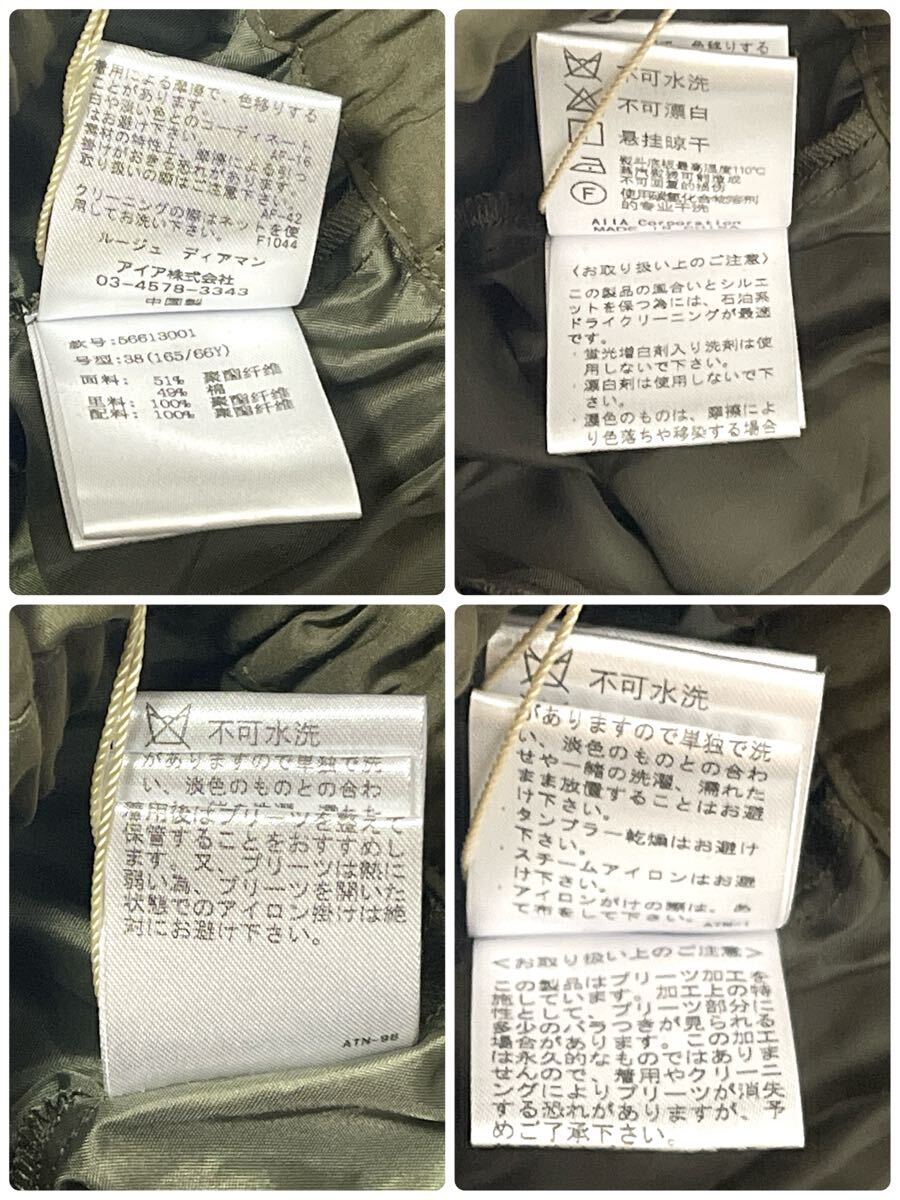 着用による摩擦で、色移りする
ことがあります。
白や淡い色とのコーディネート
はお避け下さい。 AF-16
素材の特性上、摩擦による引っ
掛けがおきる恐れがあります。
取り扱いの際はご注意下さい。
AF-42
クリーニングの際はネットを使
用してお洗い下さい。 F1044
ルージュ ディアマン
アイア株式会社
03-4578-3343
中国製
款号:56613001
号型:38(165/66Y)
面料: 51% 聚酯纤维
49% 棉
里料: 100% 聚酯纤维
配料: 100% 聚酯纤维
で、色移りする
不可水洗
不可漂白
悬挂晾干
熨斗底板最高温度110℃
蒸汽熨烫可能造成
不可回复的损伤
使用碳氢化合物溶剂
的专业干洗
F
AIIA Corporation
MADE IN CHINA
〈お取り扱い上のご注意〉
この製品の風合いとシルエ
ットを保つ為には、石油系
ドライクリーニングが最適
です。
・蛍光増白剤入り洗剤は使
用しないで下さい。
・漂白剤は使用しないで下
さい。
・濃色のものは、摩擦によ
り色落ちや移染する場合
不可水洗
がありますので単独で洗
い、淡色のものとの合わ
着用後はプリーツを整えて
保管することをおすすめし
ます。又、プリーツは熱に
弱い為、プリーツを開いた
状態でのアイロン掛けは絶
対にお避け下さい。
ATN-98
不可水洗
がありますので単独で洗
い、淡色のものとの合わ
せや一緒の洗濯、濡れた
まま放置することはお避
け下さい。
タンブラー乾燥はお避け
下さい。
スチームアイロンはお避
け下さい。
アイロンがけの際は、あ
て布をして下さい。
ATN-1
<お取り扱い上のご注意>
この製品はプリーツ加工を
施しています。加工上の特
性として、プリーツ部分に
多少のバラつきが見られる
場合があります。この加工
は永久的なものではありま
せんので、着用やクリーニ
ングによりプリーツが消失
する恐れがありますが、予
めご了承下さい。